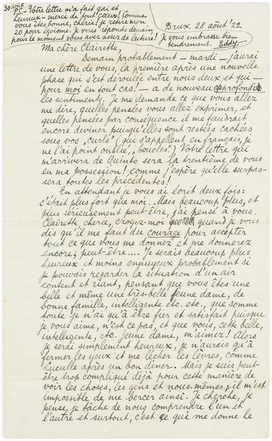 P.S. Votre lettre m'a fait gai et
heureux - merci de tout coeur! comme
vous êtes bonne, chérie! je
pour je vous réponds demain
pour le moment vous avez assez de lecture! Je vous embrasse bien
tendrement. Eddy
Brux. 28 août '22
Ma chère Clairette,
Demain probablement - mardi - j'aurai
une lettre de vous, la première après une nouvelle
phase qui s'est déroulée entre nous deux et que -
pour moi en tout cas! - a de nouveau approfondi
les sentiments; je me demande ce que vous allez
me dire, quelles pensées vous allez exprimer, et
quelles pensées par conséquence il me faudrait
encore deviner puisqu'elles sont restées cachées
sous vos "curls" qui s'appellent en français, je
ne l'ai point oublié, "boucles"! Votre lettre qui
m'arrivera de Quinto sera la trentième de vous
en ma possession! comme j'espère qu'elle surpas-
sera toutes les précédentes!
En attendant je vous ai écrit deux fois:
c'était plus fort que moi. Mais beaucoup plus, et
plus sérieusement peut-être, j'ai pensé à vous.
Clairette chère, croyez-moi quand je vous
dis qu'il me faut du courage pour accepter
tout ce que vous me donnez et me donnerez
encore, peut-être.... Je serais beaucoup plus
heureux et moins ennuyeux probablement si
je pouvais regarder la situation d'un air
content et riant, pensant que vous êtes une
belle et même une très-belle jeune dame, de
bonne famille, intelligente etc. etc., que somme
toute je n'ai qu'à être fier et satisfait puisque
je vous aime, n'est-ce pas, et que vous, cette belle,
intelligente, etc. jeune dame, m'aimez! Alors
je serais simplement heureux, je n'aurais qu'à
fermer les yeux et me lécher les lèvres, comme
après un bon dîner. Mais je suis peut-
être trop compliqué déjà pour cette manière de
voir les choses, les gens et nous-mêmes; il m'est
impossible de me bercer ainsi. Je cherche, je
pense, je tâche de nous comprendre l'un et
l'autre et surtout, c'est ce qui me donne le